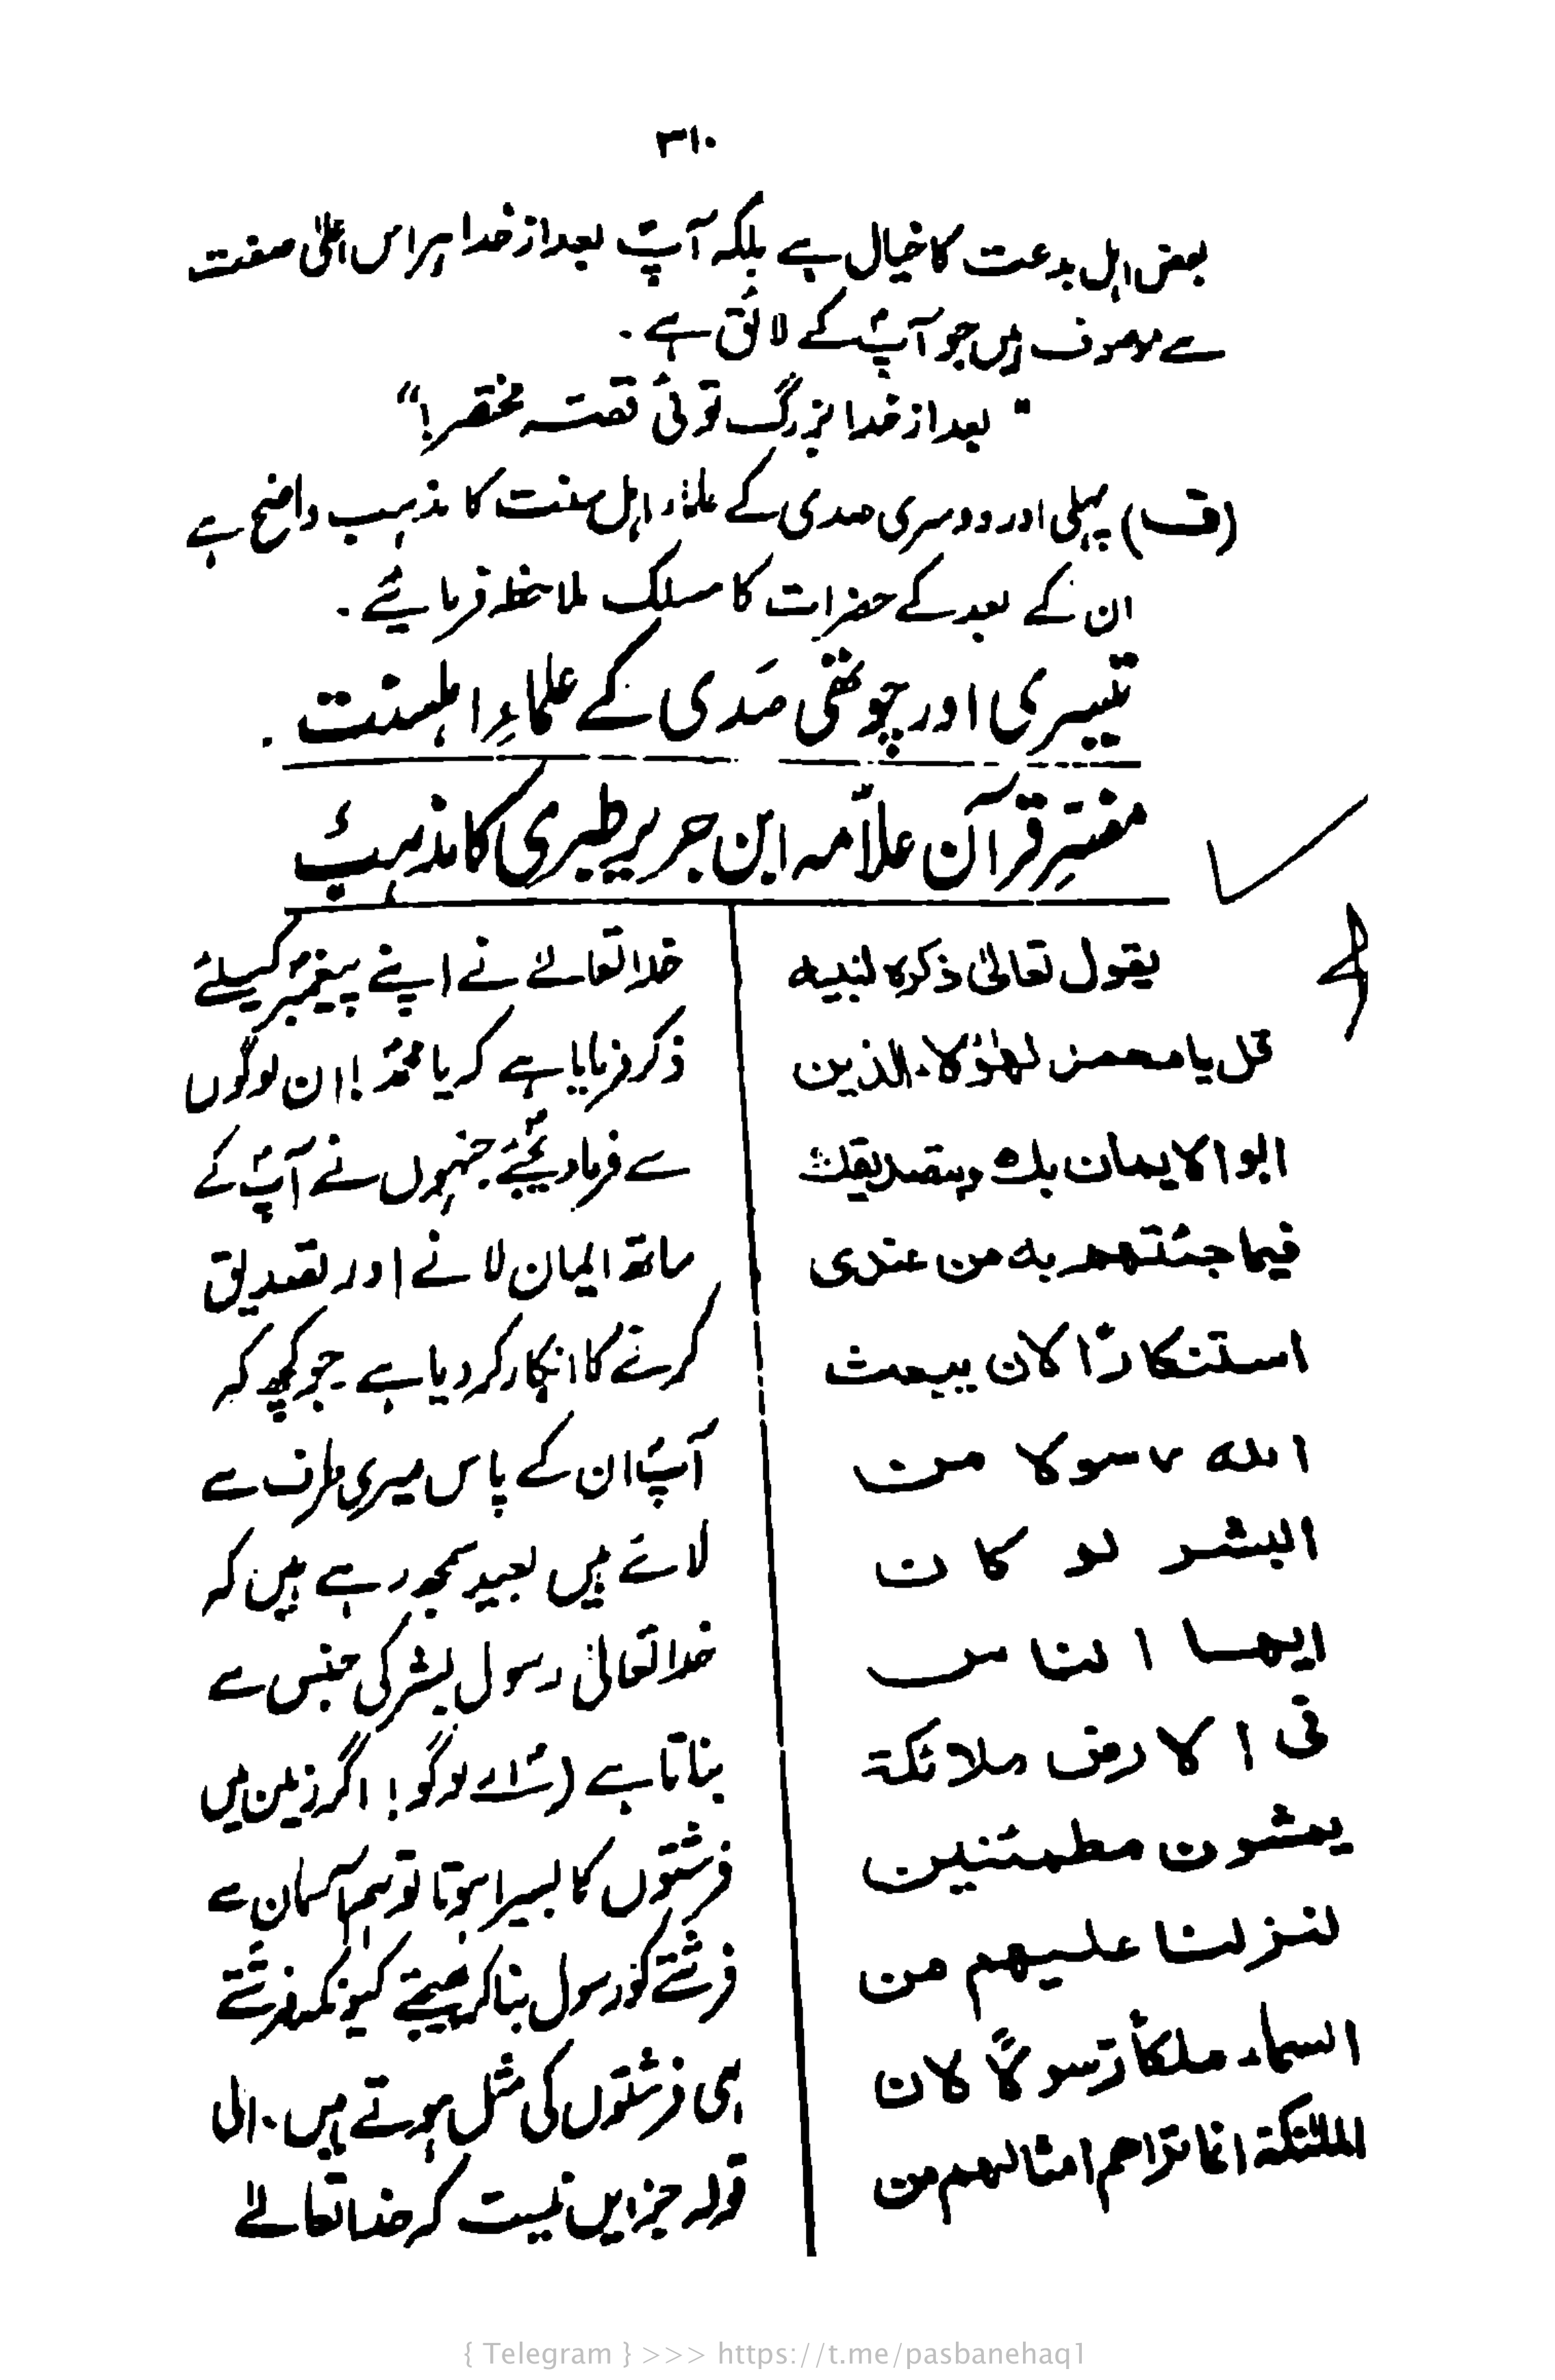 ۳۱۰
بعض اہل بدعت کا خیال ہے بلکہ آپؐ بعد از خدا ہر اس اعلیٰ صفت
سے موصوف ہیں جو آپؐ کے لائق ہے۔
"بعد از خدا بزرگ توئی قصّہ مختصر!"
(ف) پہلی اور دوسری صدی کے علماء اہل سنت کا مذہب واضح ہے
ان کے بعد کے حضرات کا مسلک ملاحظہ فرمائیے۔
تیسری اور چوتھی صَدی کے علماءِ اہلسنت۔
مفسّرِ قرآن علاّمہ ابن جریر طبری کا مذہب
یقول تعالیٰ ذکرہ لنبیه
قل یا محمد لھٰؤلاء الذین
ابوا الایمان بك وبتصدیقك
فیما جئتھم به من عندی
استنکارًا لان یبعث
الله رسولا من
البشر لو کان
ایھا الناس
فی الارض ملائکة
یمشون مطمئنین
لنزلنا علیھم من
السماء ملکاً رّسولاً لان
الملئکة انما تراھم امثالھم من
خدا تعالےٰ نے اپنے پیغمبرؐ کیلئے
ذکر فرمایا ہے کہ یا محمدؐ! ان لوگوں
سے فرما دیجئے جنہوں نے آپؐ کے
ساتھ ایمان لانے اور تصدیق
کرنے کا انکار کر دیا ہے۔ جو کچھ کہ
آپؐ ان کے پاس میری طرف سے
لائے ہیں بعید سمجھ رہے ہیں کہ
خدا تعالیٰ رسول بشر کی جنس سے
بناتا ہے ( اے لوگو! اگر زمین میں
فرشتوں کا بسیرا ہوتا تو ہم آسمان سے
فرشتے کو رسول بنا کر بھیجتے کیونکہ فرشتے
ہی فرشتوں کی مثل ہوتے ہیں۔ الی
قولہ جز این نیست کہ خدا تعالےٰ
{ Telegram } >>> https://t.me/pasbanehaq1